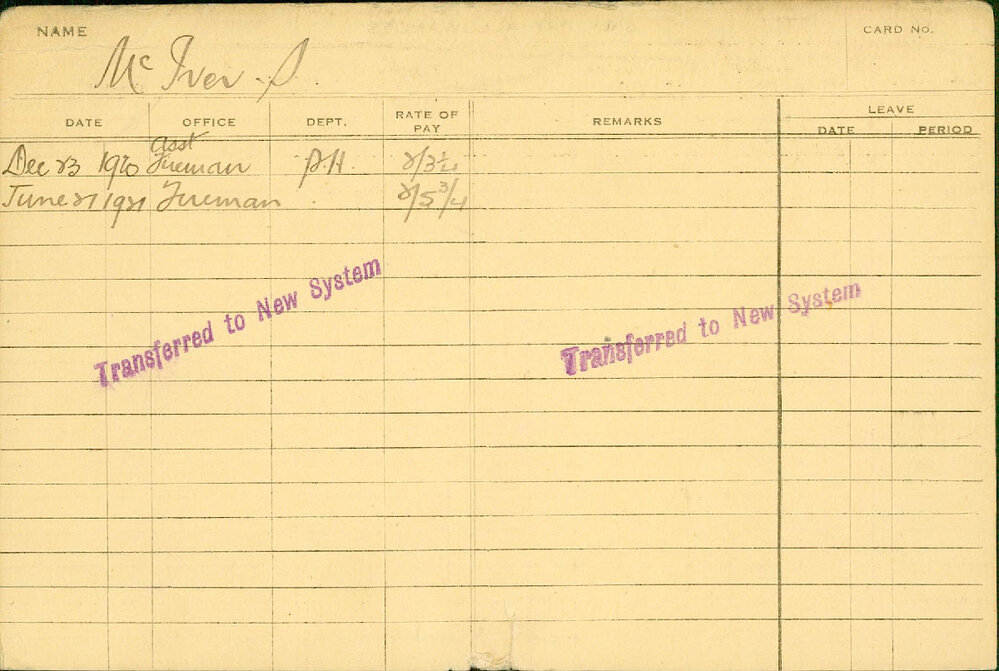 NAME
CARD NO.
McIver. S.
DATE OFFICE DEPT. RATE OF PAY REMARKS LEAVE
DATE PERIOD
Dec 23 1920 Asst Fireman P.H. 2/3¼
June 21 1921 Fireman 2/5¾
Transferred to New System
Transferred to New System